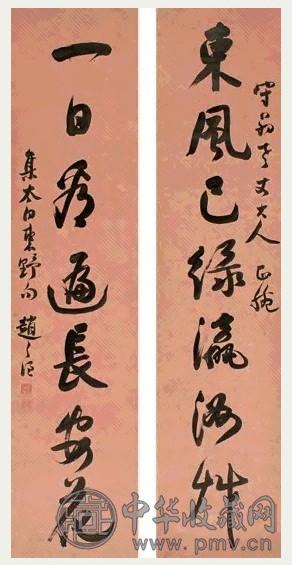 東風已綠瀛洲艸
老丈大人 正腕
一日看遍長安花
集太白東野句 趙之
中华收藏网
www.pmv.cn